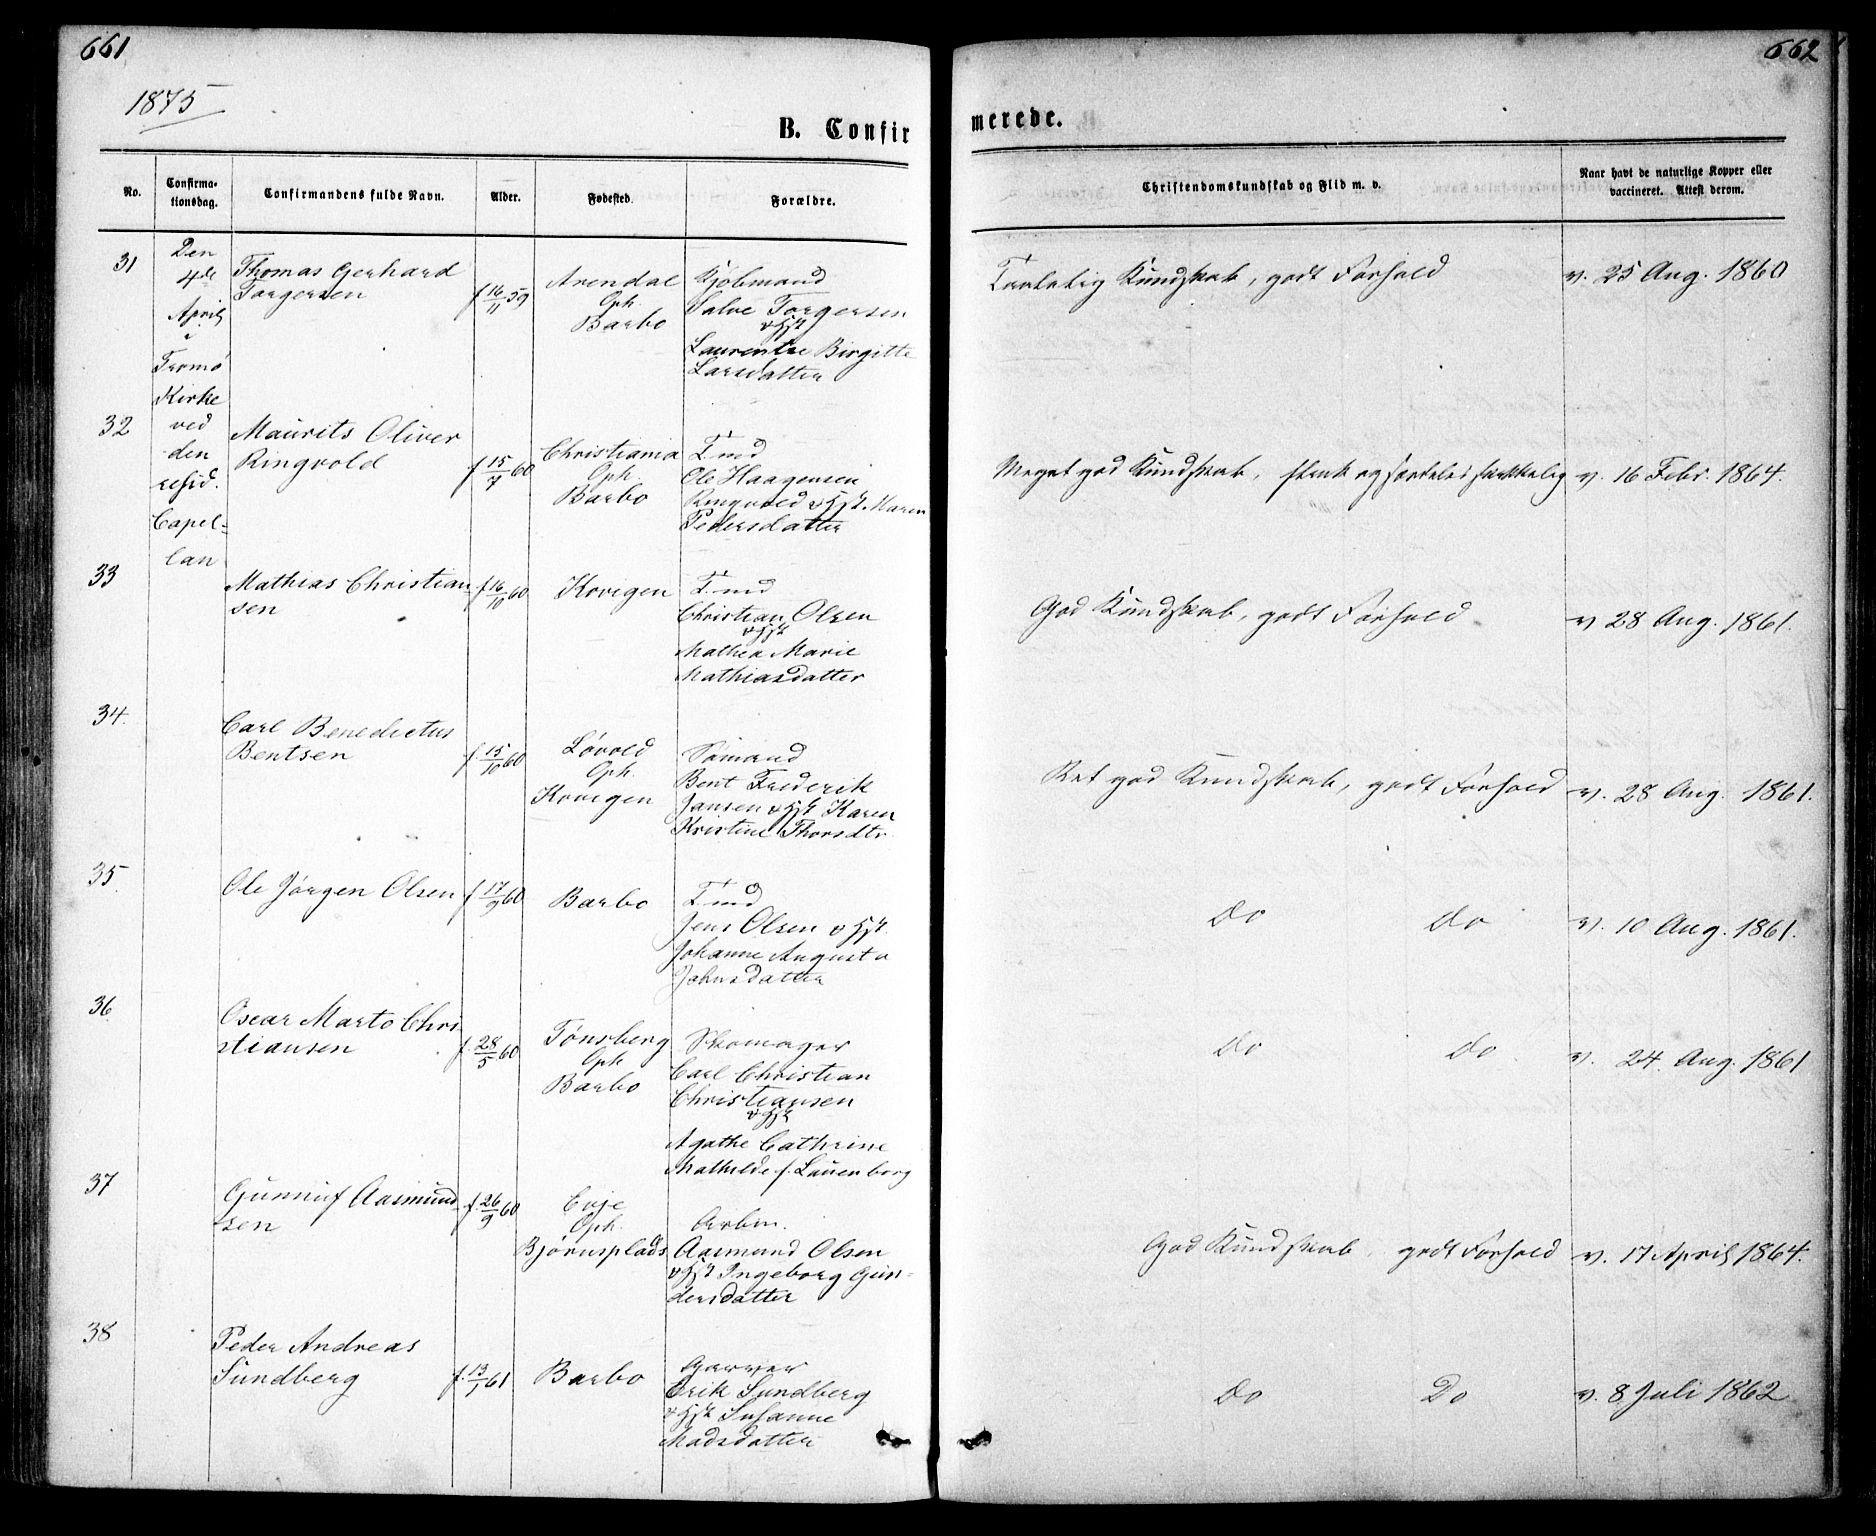 661
1875
B. Confir
No.
Confirma-
tionsdag.
Confirmandens fulde Navn.
Alder.
Fødested.
Forældre.
Den
4de
April
i
Tromø
Kirke
ved
den
resid.
Capel-
lan
31
Thomas Gerhard
Torgersen
f 16/11 59
Arendal
Oph.
Barbo
Kjøbmand
Salve Torgersen
o Hst
Laurentze Birgitte
Larsdatter
32
Maurits Oliver
Ringvold
f 15/7 60
Christiania
Oph.
Barbo
Tmd
Ole Haagensen
Ringvold o Hst. Maren
Pedersdatter
33
Mathias Christian-
sen
f 16/10 60
Kovigen
Tmd
Christian Olsen
o Hst
Mathea Marie
Mathiasdatter
34.
Carl Benedictus
Bentsen
f. 15/10 60
Løvold
Oph.
Kovigen
Sømand
Bent Frederik
Jansen o Hst Karen
Kristine Thorsdtr.
35.
Ole Jørgen Olsen
f 17/9 60
Barbo
Tmd
Jens Olsen o Hst.
Johanne Augusta
Johnsdatter
36.
Oscar Marto Chri-
stiansen
f. 28/5 60
Tønsberg
Oph
Barbo
Skomager
Carl Christian
Christiansen
o Hst
Agathe Cathrine
Mathilde f. Lauenborg
37
Gunnuf Aasmund-
sen
f. 26/9 60
Evje
Oph.
Bjørnsplads
Arbm.
Aasmund Olsen
o Hst Ingeborg Gun-
dersdatter
38
Peder Andreas
Sundberg
f. 13/1 61
Barbo
Garver
Erik Sundberg
o Hst Susanne
Madsdatter
662
merede.
Christendomskundskab og Flid m. v.
Naar havt de naturlige Kopper eller
vaccineret. Attest derom.
Taalelig Kundskab, godt Forhold
v. 25 Aug. 1860
Meget god Kundskab, flink og særdeles skikkelig
v. 16 Febr. 1864.
God Kundskab, godt Forhold
v 28 Aug. 1861.
Ret god Kundskab, godt Forhold
v. 28 Aug. 1861.
Do Do
v. 10 Aug. 1861.
Do Do
v. 24. Aug. 1861
God Kundskab, godt Forhold
v. 17 April 1864.
Do Do
v. 8 Juli 1862